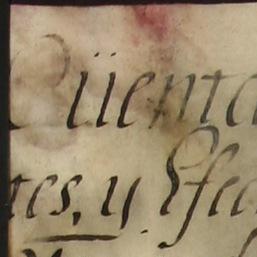 Cüenta
tes, y Efec